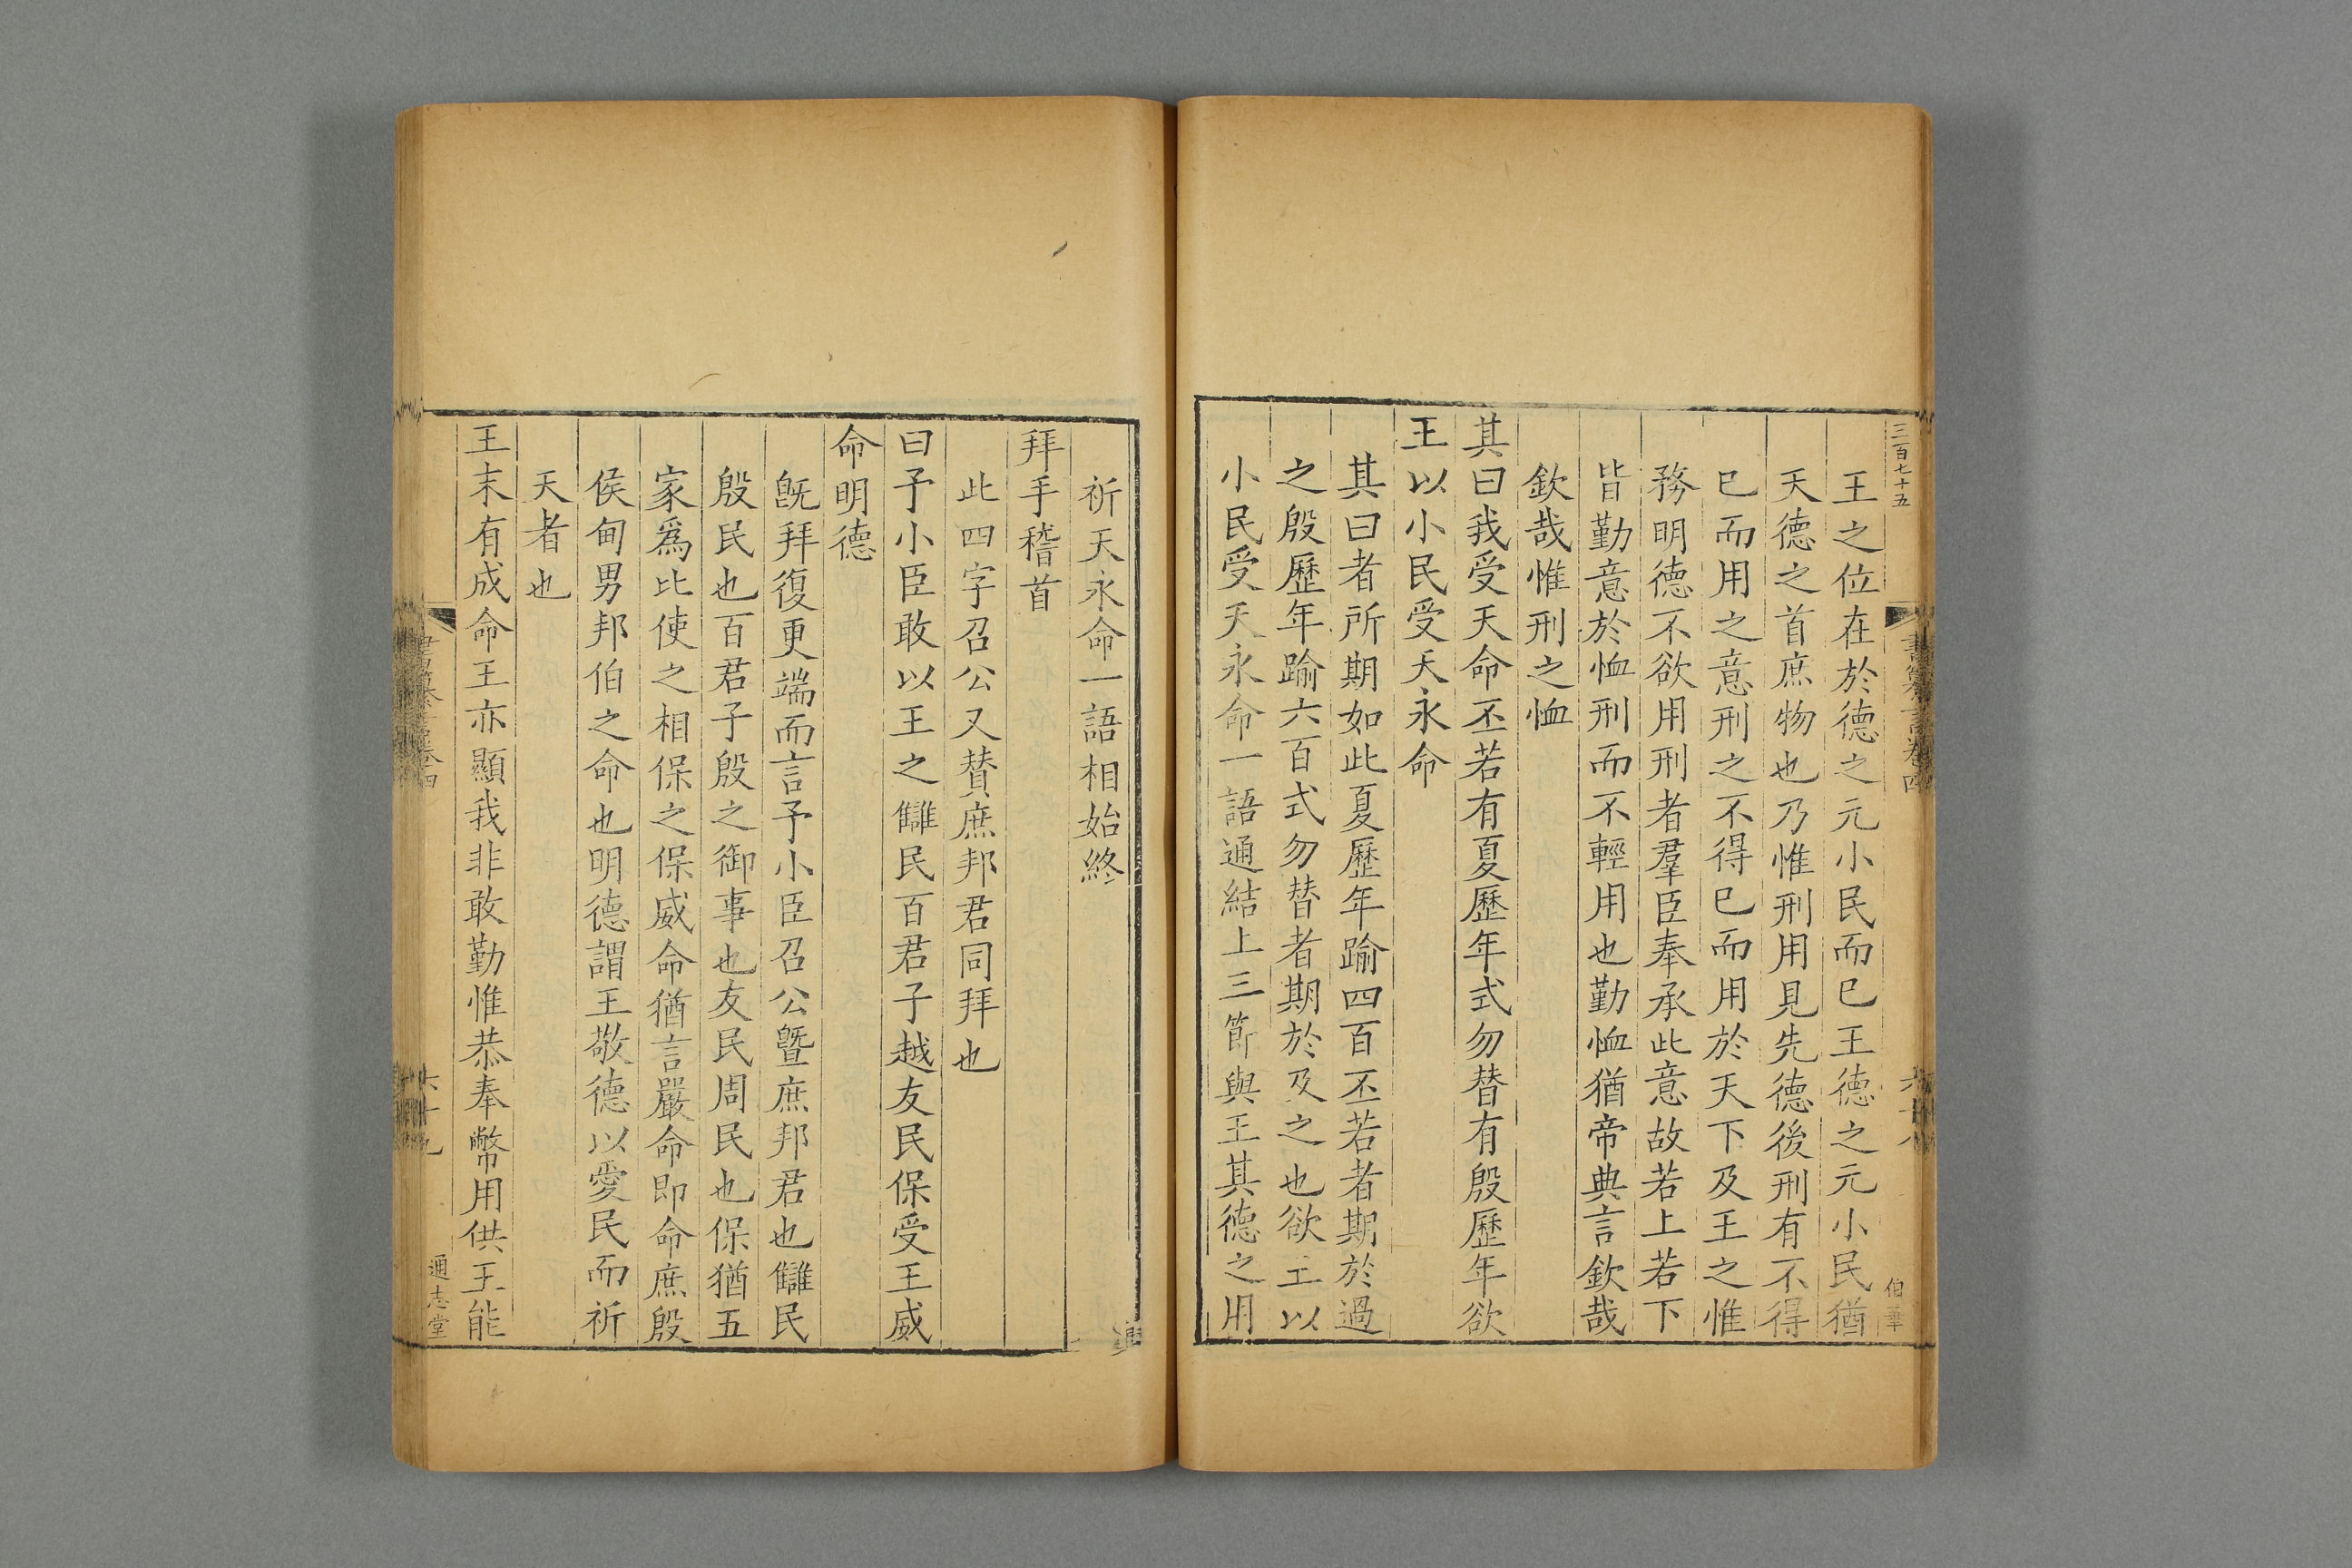 三百七十五
伯華
王之位在於德之元小民而已王德之元小民猶
天德之首庶物也乃惟刑用見先德後刑有不得
已而用之意刑之不得已而用於天下及王之惟
務明德不欲用刑者羣臣奉承此意故若上若下
皆勤意於恤刑而不輕用也勤恤猶帝典言欽哉
欽哉惟刑之恤
其曰我受天命丕若有夏歷年式勿替有殷歷年欲
王以小民受天永命
其曰者所期如此夏歷年踰四百丕若者期於過
之殷歷年踰六百式勿替者期於及之也欲王以
小民受天永命一語通結上三節與王其德之用
祈天永命一語相始終
拜手稽首
此四字召公又贊庶邦君同拜也
曰予小臣敢以王之讎民百君子越友民保受王威
命明德
旣拜復更端而言予小臣召公曁庶邦君也讎民
殷民也百君子殷之御事也友民周民也保猶五
家爲比使之相保之保威命猶言嚴命即命庶殷
侯甸男邦伯之命也明德謂王敬德以愛民而祈
天者也
王末有成命王亦顯我非敢勤惟恭奉幣用供王能
通志堂